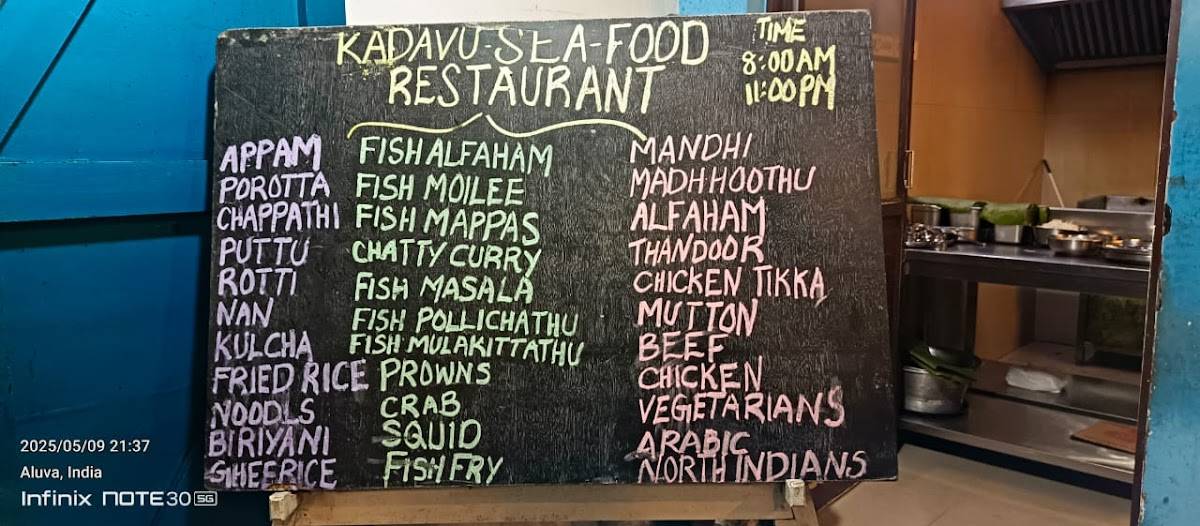 KADAVU-SEA-FOOD
RESTAURANT
TIME
8:00AM
11:00PM
APPAM
POROTTA
CHAPPATHI
PUTTU
ROTTI
NAN
KULCHA
FRIED RICE
NOODLS
BIRIYANI
GHEERICE
FISH ALFAHAM
FISH MOILEE
FISH MAPPAS
CHATTY CURRY
FISH MASALA
FISH POLLICHATHU
FISH MULAKITTATHU
PROWNS
CRAB
SQUID
FISH FRY
MANDHI
MADHHOOTHU
ALFAHAM
THANDOOR
CHICKEN TIKKA
MUTTON
BEEF
CHICKEN
VEGIETARIANS
ARABIC
NORTH INDIANS
2025/05/09 21:37
Aluva, India
Infinix NOTE 30 5G